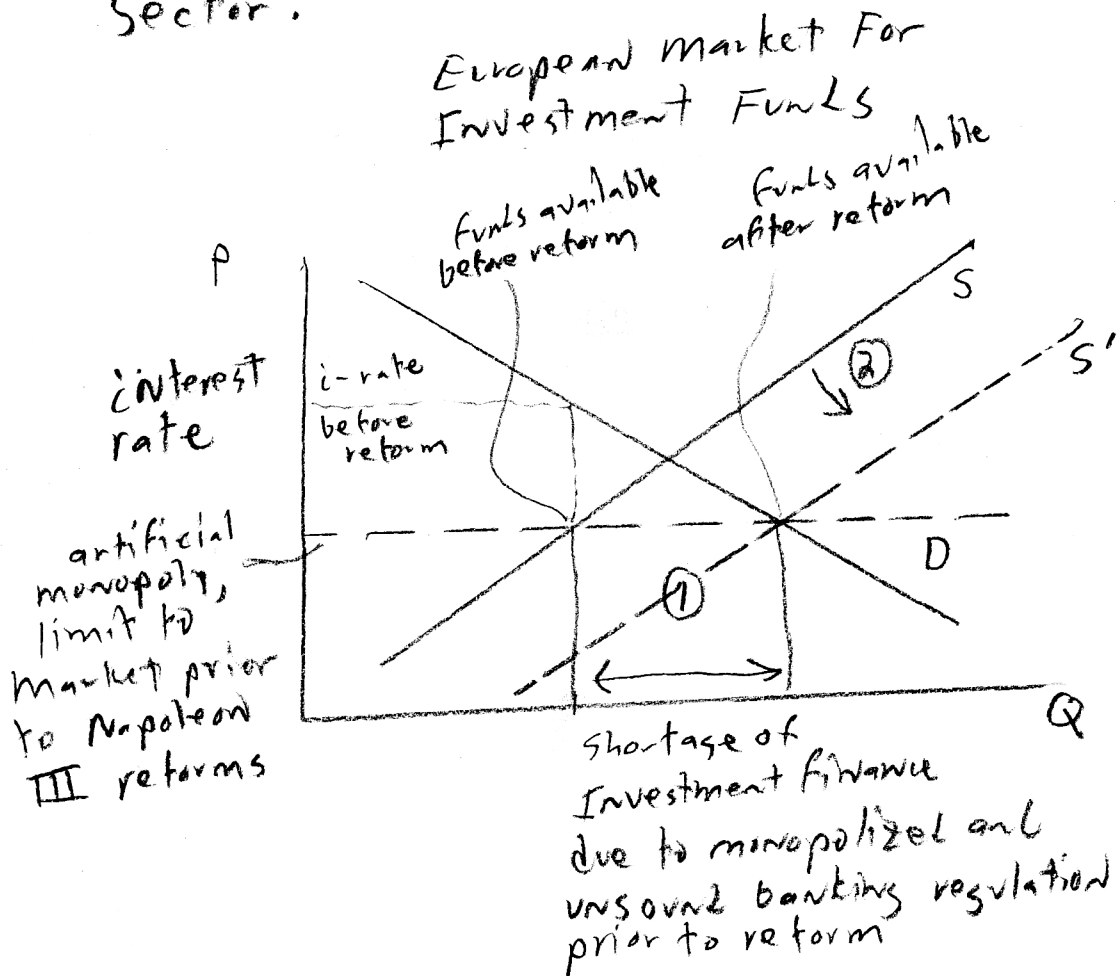 Sector.
European Market For
Investment Funds
funds available
before reform
funds available
after reform
P
S
S'
②
interest
rate
i-rate
before
reform
artificial
monopoly,
limit to
Market prior
to Napoleon
III reforms
D
①
Q
Shortage of
Investment finance
due to monopolized and
unsound banking regulation
prior to reform